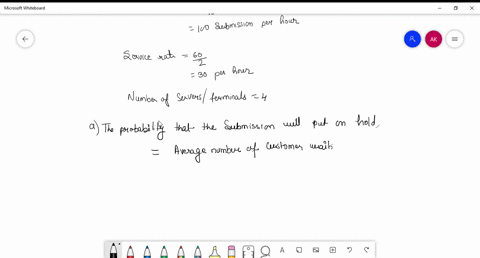 Microsoft Whiteboard
= 100 Submission per hour
Service rate = 60/2
= 30 per hour
Number of Servers/terminals = 4
a) The probability that the Submission will put on hold,
= Average number of customer waiti
AK
A